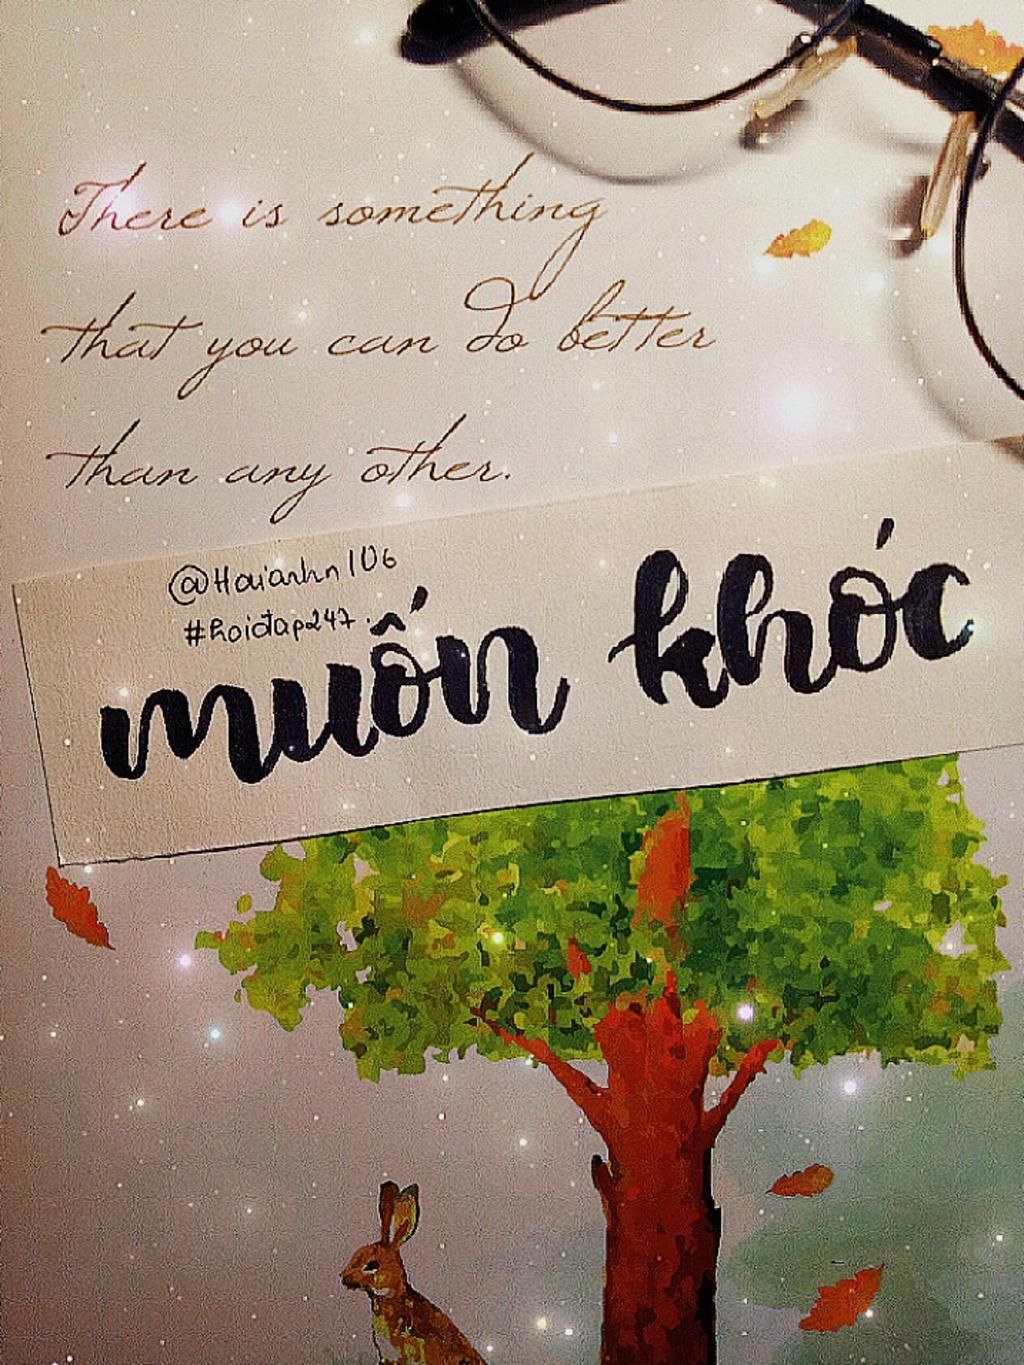 There is something
that you can do better
than any other.
@Haianhn106
#hoidap247.
muốn khóc